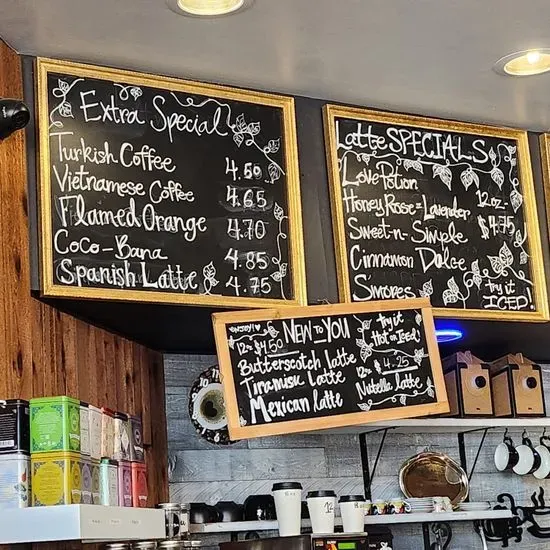 Extra Special
Turkish Coffee 4.50
Vietnamese Coffee 4.65
Flamed Orange 4.70
Coco-Bana 4.85
Spanish Latte 4.75
Latte SPECIALS
Love Potion
Honey, Rose & Lavender 12oz.
Sweet-n-Simple $4.75
Cinnamon Dolce
S'mores
try it
ICED!
ENJOY!
NEW to YOU
12oz $4.50
Butterscotch latte
Tiramisu Latte
Mexican latte
try it
Hot or Iced
12oz 4.25
Nutella latte